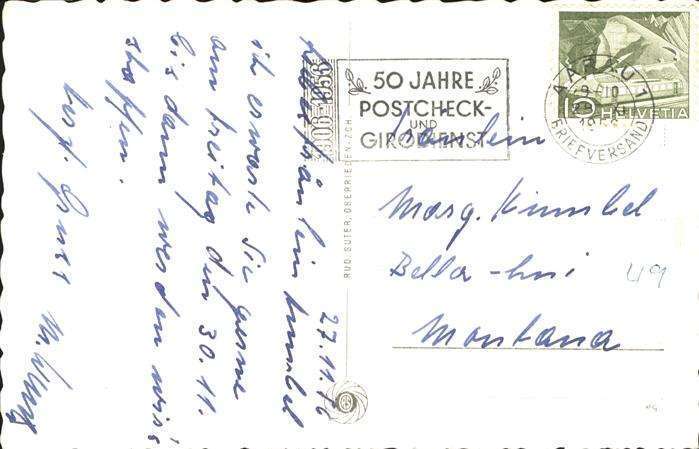 27.11.56
Liebes Fräulein Kimmel
ich erwarte Sie gerne
am freitag den 30.11.
bis dann werden wir's
schaffen.
herzl. Gruss
1906-1956
50 JAHRE
POSTCHECK-
UND
GIRODIENST
AARAU 1
BRIEFVERSAND
10 HELVETIA
RUD. SUTER, OBERRIEDEN-ZCH.
Fräulein
Marg. Kimmel
Bella-Lui
Montana
49